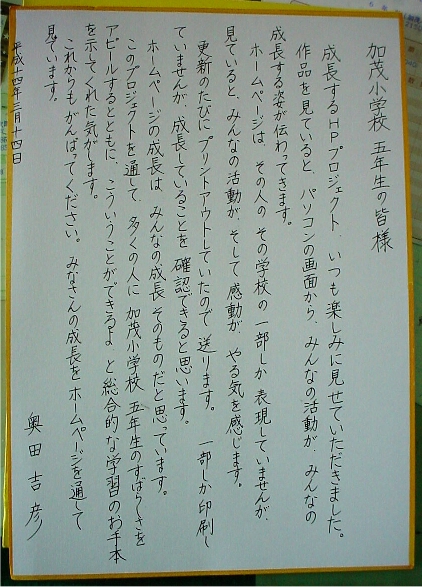 加茂小学校 五年生の皆様
成長するHPプロジェクト、いつも楽しみに見せていただきました。
作品を見ていると、パソコンの画面から、みんなの活動が、みんなの
成長する姿が伝わってきます。
ホームページは、その人の その学校の一部しか 表現していませんが、
見ていると、みんなの活動が、そして 感動が、やる気を感じます。
更新のたびに プリントアウトしていたので 送ります。 一部しか印刷し
ていませんが、成長していることを 確認できると思います。
ホームページの成長は、みんなの成長 そのものだと思っています。
このプロジェクトを通して、多くの人に 加茂小学校 五年生のすばらしさを
アピールするとともに、こういうことができるよ と総合的な学習のお手本
を示してくれた気がします。
これからも がんばってください。みなさんの成長を ホームページを通して
見ています。
平成十四年三月十四日
奥田吉彦